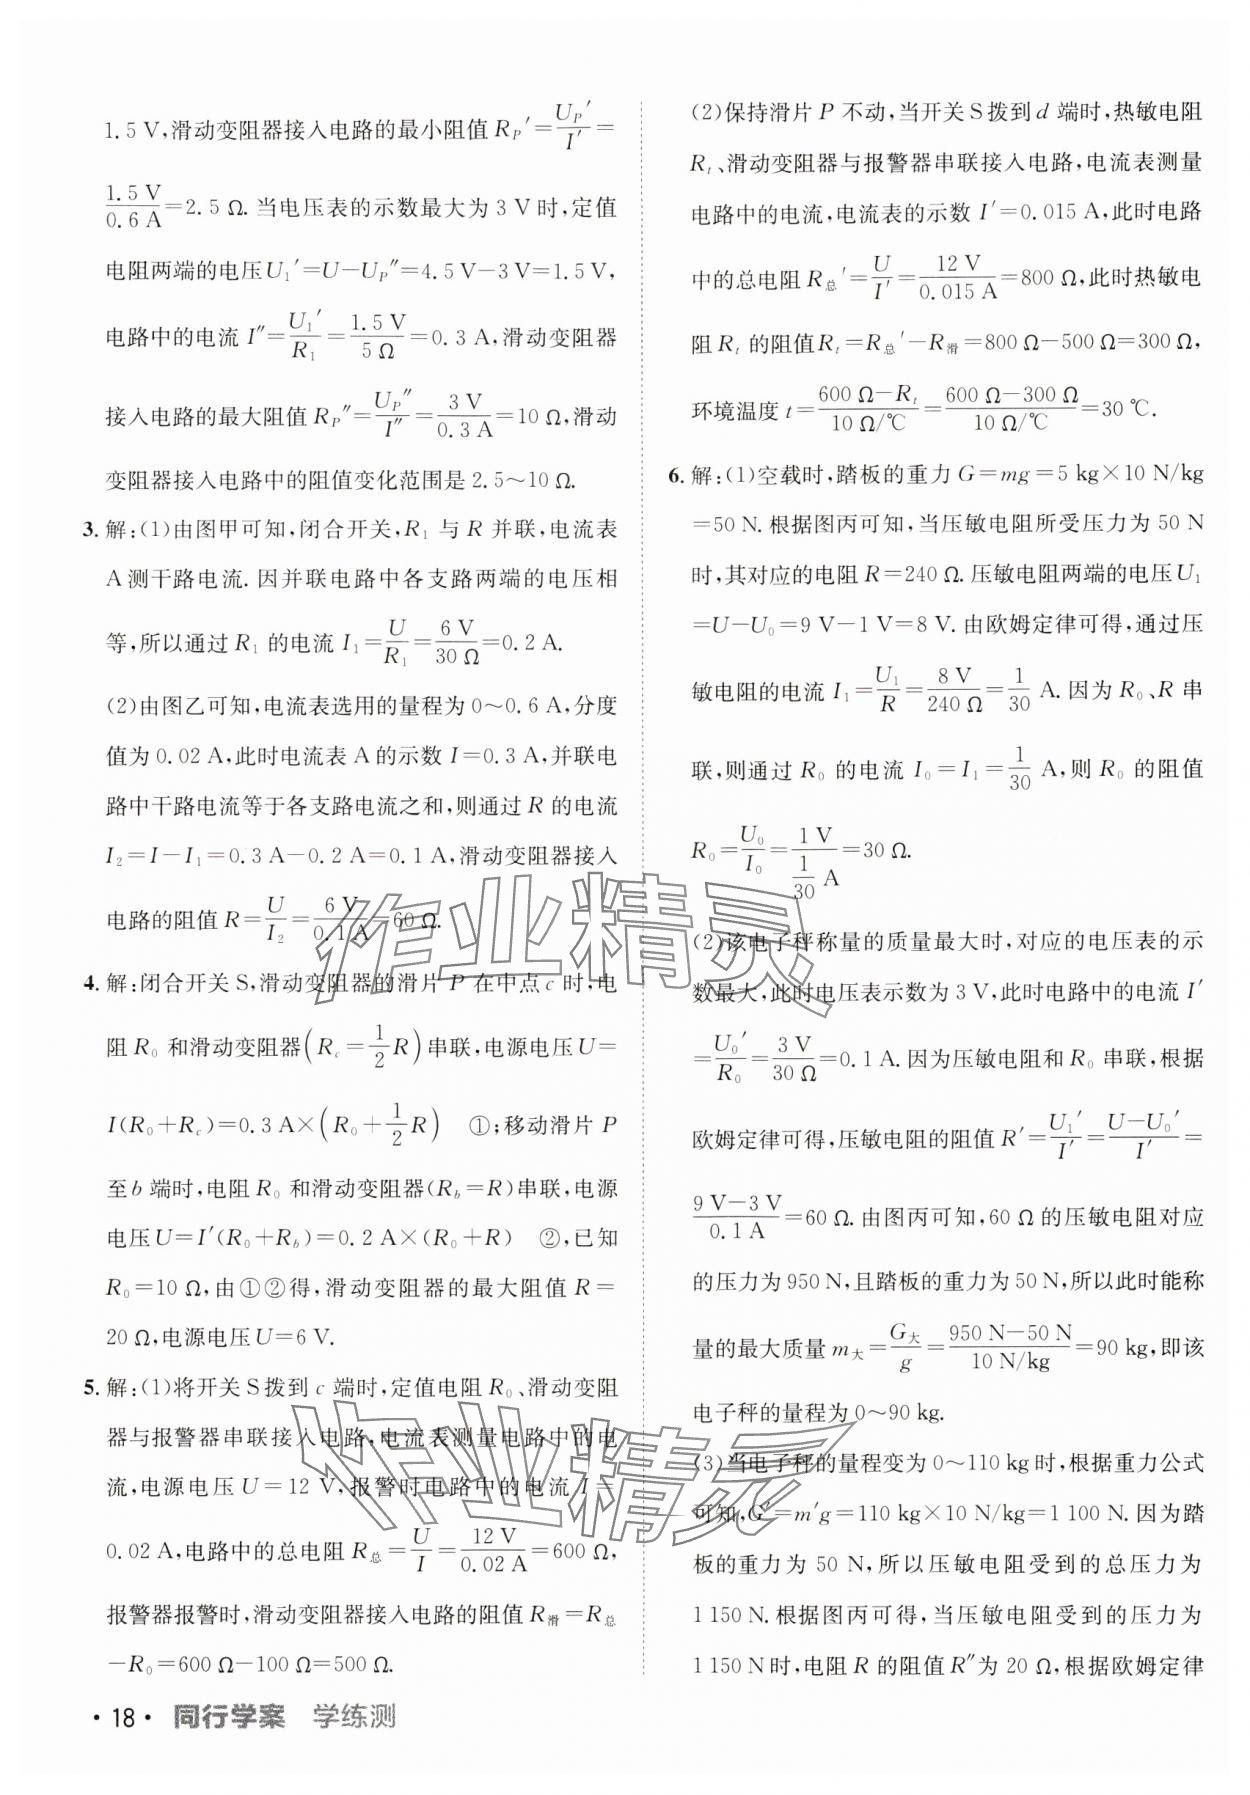 1.5 V,滑动变阻器接入电路的最小阻值 R_P′=U_P′/I′=
1.5 V/0.6 A=2.5 Ω. 当电压表的示数最大为 3 V 时,定值
电阻两端的电压 U₁′=U−U_P″=4.5 V−3 V=1.5 V,
电路中的电流 I″=U₁′/R₁=1.5 V/5 Ω=0.3 A,滑动变阻器
接入电路的最大阻值 R_P″=U_P″/I″=3 V/0.3 A=10 Ω,滑动
变阻器接入电路中的阻值变化范围是 2.5～10 Ω.
3. 解:(1)由图甲可知,闭合开关,R₁ 与 R 并联,电流表
A 测干路电流. 因并联电路中各支路两端的电压相
等,所以通过 R₁ 的电流 I₁=U/R₁=6 V/30 Ω=0.2 A.
(2)由图乙可知,电流表选用的量程为 0～0.6 A,分度
值为 0.02 A,此时电流表 A 的示数 I=0.3 A,并联电
路中干路电流等于各支路电流之和,则通过 R 的电流
I₂=I−I₁=0.3 A−0.2 A=0.1 A,滑动变阻器接入
电路的阻值 R=U/I₂=6 V/0.1 A=60 Ω.
4. 解:闭合开关 S,滑动变阻器的滑片 P 在中点 c 时,电
阻 R₀ 和滑动变阻器(R_c=1/2R)串联,电源电压 U=
I(R₀+R_c)=0.3 A×(R₀+1/2R) ①;移动滑片 P
至 b 端时,电阻 R₀ 和滑动变阻器(R_b=R)串联,电源
电压 U=I′(R₀+R_b)=0.2 A×(R₀+R) ②,已知
R₀=10 Ω,由①②得,滑动变阻器的最大阻值 R=
20 Ω,电源电压 U=6 V.
5. 解:(1)将开关 S 拨到 c 端时,定值电阻 R₀、滑动变阻
器与报警器串联接入电路,电流表测量电路中的电
流,电源电压 U=12 V,报警时电路中的电流 I=
0.02 A,电路中的总电阻 R_总=U/I=12 V/0.02 A=600 Ω,
报警器报警时,滑动变阻器接入电路的阻值 R_滑=R_总
−R₀=600 Ω−100 Ω=500 Ω.
(2)保持滑片 P 不动,当开关 S 拨到 d 端时,热敏电阻
R_t、滑动变阻器与报警器串联接入电路,电流表测量
电路中的电流,电流表的示数 I′=0.015 A,此时电路
中的总电阻 R_总′=U/I′=12 V/0.015 A=800 Ω,此时热敏电
阻 R_t 的阻值 R_t=R_总′−R_滑=800 Ω−500 Ω=300 Ω,
环境温度 t=600 Ω−R_t/10 Ω/℃=600 Ω−300 Ω/10 Ω/℃=30 ℃.
6. 解:(1)空载时,踏板的重力 G=mg=5 kg×10 N/kg
=50 N. 根据图丙可知,当压敏电阻所受压力为 50 N
时,其对应的电阻 R=240 Ω. 压敏电阻两端的电压 U₁
=U−U₀=9 V−1 V=8 V. 由欧姆定律可得,通过压
敏电阻的电流 I₁=U₁/R=8 V/240 Ω=1/30 A. 因为 R₀、R 串
联,则通过 R₀ 的电流 I₀=I₁=1/30 A,则 R₀ 的阻值
R₀=U₀/I₀=1 V/(1/30 A)=30 Ω.
(2)该电子秤称量的质量最大时,对应的电压表的示
数最大,此时电压表示数为 3 V,此时电路中的电流 I′
=U₀′/R₀=3 V/30 Ω=0.1 A. 因为压敏电阻和 R₀ 串联,根据
欧姆定律可得,压敏电阻的阻值 R′=U₁′/I′=U−U₀′/I′=
9 V−3 V/0.1 A=60 Ω. 由图丙可知,60 Ω 的压敏电阻对应
的压力为 950 N,且踏板的重力为 50 N,所以此时能称
量的最大质量 m_大=G_大/g=950 N−50 N/10 N/kg=90 kg,即该
电子秤的量程为 0～90 kg.
(3)当电子秤的量程变为 0～110 kg 时,根据重力公式
可知,G′=m′g=110 kg×10 N/kg=1 100 N. 因为踏
板的重力为 50 N,所以压敏电阻受到的总压力为
1 150 N. 根据图丙可得,当压敏电阻受到的压力为
1 150 N 时,电阻 R 的阻值 R″为 20 Ω,根据欧姆定律
作业精灵
作业精灵
·18· 同行学案 学练测